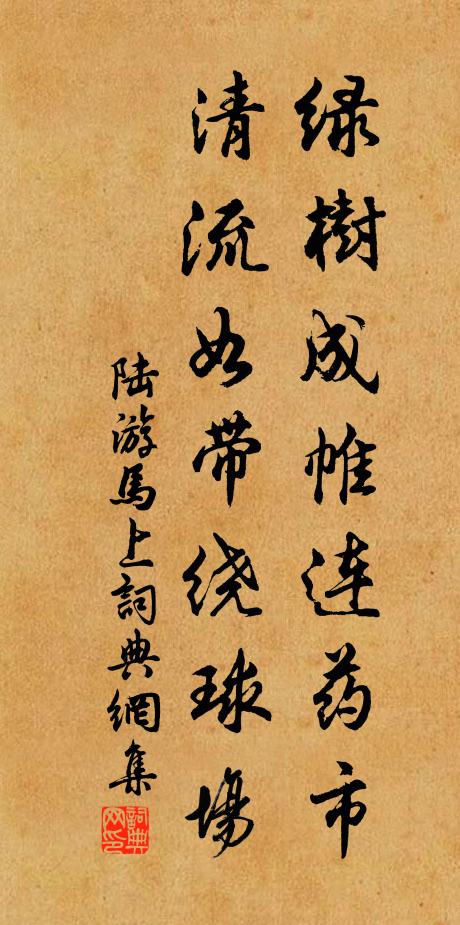 绿樹成帷连药市
清流如带绕球場
陆游馬上詞典網集
詞典网印